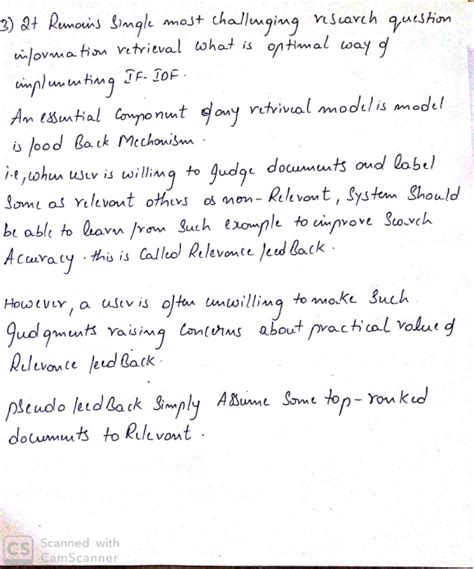 3) It Remains Single most challenging research question
information retrieval what is optimal way of
implementing IF-IDF.
An essential Component of any retrivial model is model
is food Back Mechonism.
i.e, when user is willing to Judge documents and label
Some as relevant others as non-Relevant, System Should
be able to learn from Such example to improve Search
Accuracy. this is Called Relevance feed Back.
However, a user is often unwilling to make Such
Judgments raising Concerns about practical value of
Relevance feed Back.
pseudo feed Back Simply Assume Some top-ranked
documents to Relevant.
CS Scanned with
CamScanner